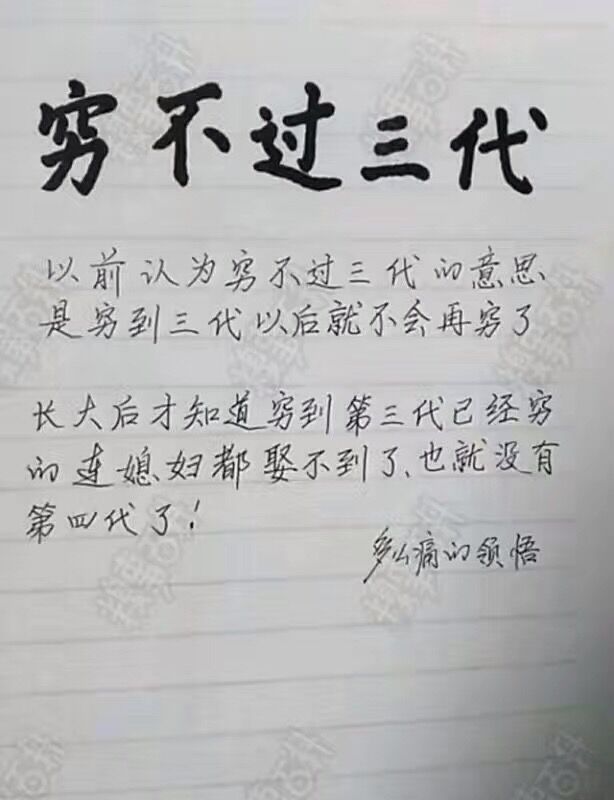 穷不过三代
以前认为穷不过三代的意思
是穷到三代以后就不会再穷了
长大后才知道穷到第三代已经穷
的连媳妇都娶不到了、也就没有
第四代了！
多么痛的领悟